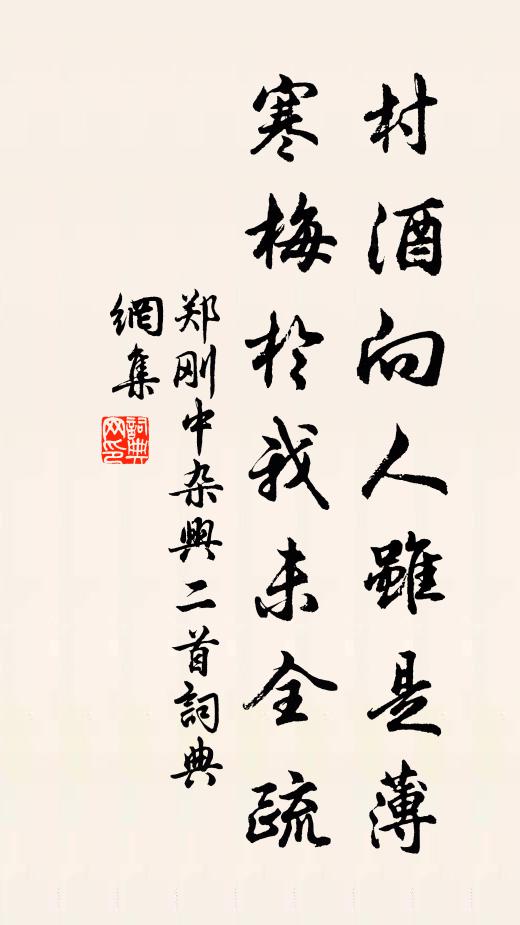 村酒向人雖是薄
寒梅於我未全疏
郑刚中杂興二首詞典
網集
詞典网印